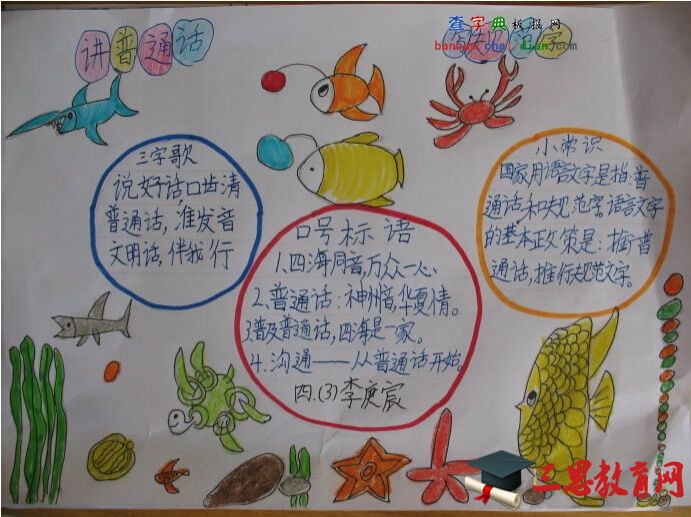 讲普通话
查字典板报网
banbao.chazidian.com
写规范字
三字歌
说好话口齿清
普通话,准发音
文明话,伴我行
口号标语
1.四海同音,万众一心、
2.普通话:神州音,华夏情。
3.普及普通话,四海是一家。
4.沟通——从普通话开始。
四.(3)李庚宸
小常识
国家用语言文字是指:普
通话和规范字,语言文字
的基本政策是:推广普
通话,推行规范文字。
三思教育网